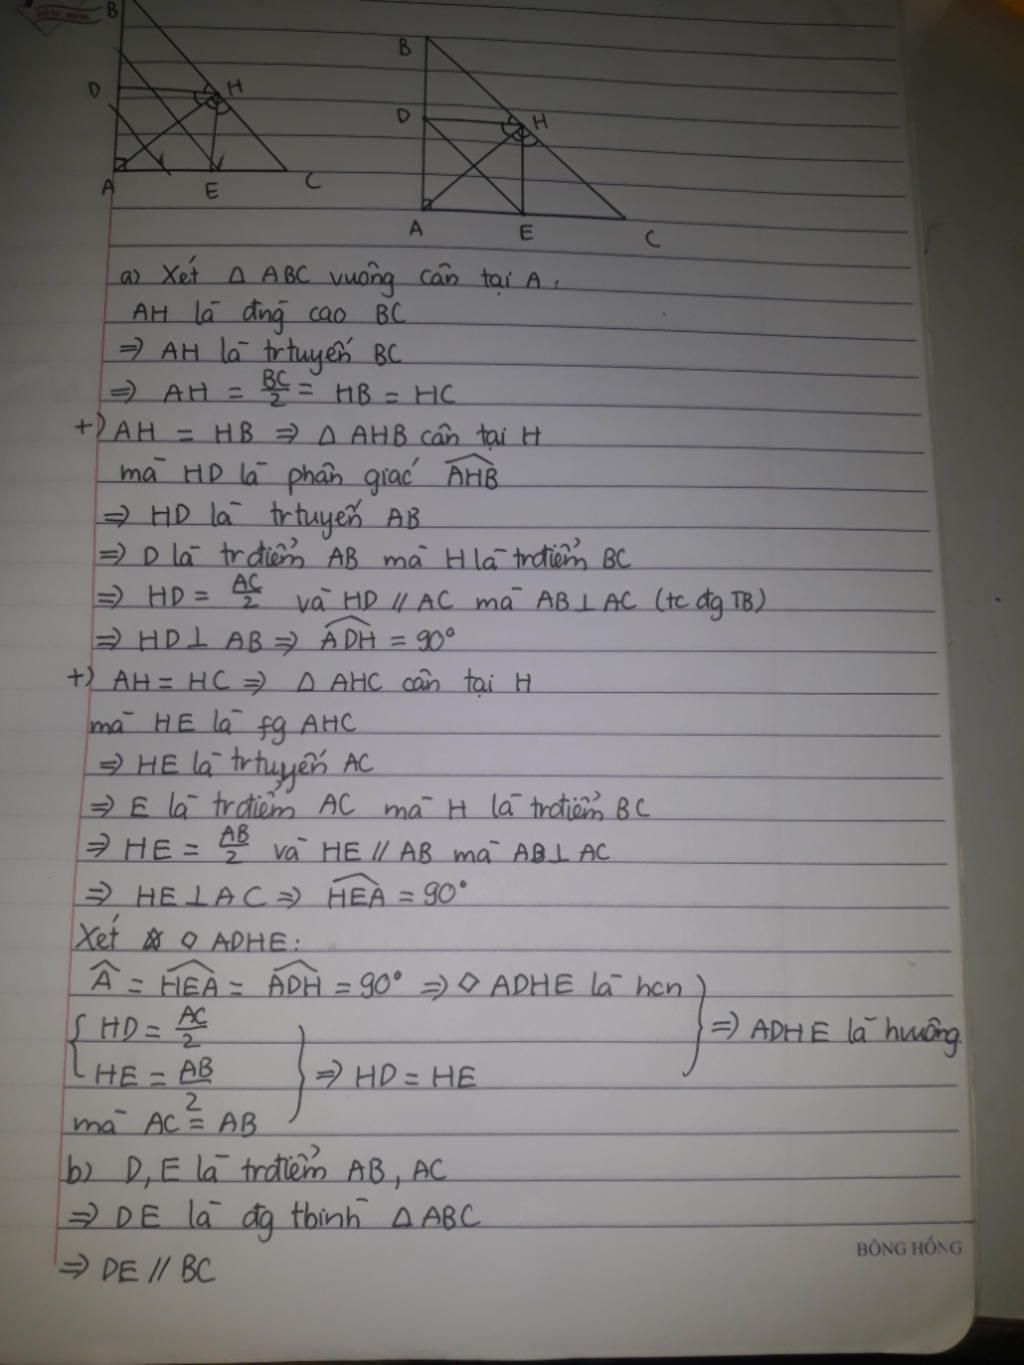 B
D
H
A
E
C
B
D
H
A
E
C
a) Xét △ ABC vuông cân tại A:
AH là đng cao BC
⇒ AH là trtuyến BC
⇒ AH = BC/2 = HB = HC
+) AH = HB ⇒ △ AHB cân tại H
mà HD là phân giác AHB
⇒ HD là trtuyến AB
⇒ D là trđiểm AB mà H là trđiểm BC
⇒ HD = AC/2 và HD // AC mà AB ⊥ AC (tc đg TB)
⇒ HD ⊥ AB ⇒ ADH = 90°
+) AH = HC ⇒ △ AHC cân tại H
mà HE là fg AHC
⇒ HE là trtuyến AC
⇒ E là trđiểm AC mà H là trđiểm BC
⇒ HE = AB/2 và HE // AB mà AB ⊥ AC
⇒ HE ⊥ AC ⇒ HEA = 90°
Xét ◇ ADHE:
A = HEA = ADH = 90° ⇒ ◇ ADHE là hcn
HD = AC/2
HE = AB/2
⇒ HD = HE
mà AC = AB
⇒ ADHE là hvuông.
b) D, E là trđiểm AB, AC
⇒ DE là đg tbinh △ ABC
⇒ DE // BC
BÔNG HỒNG